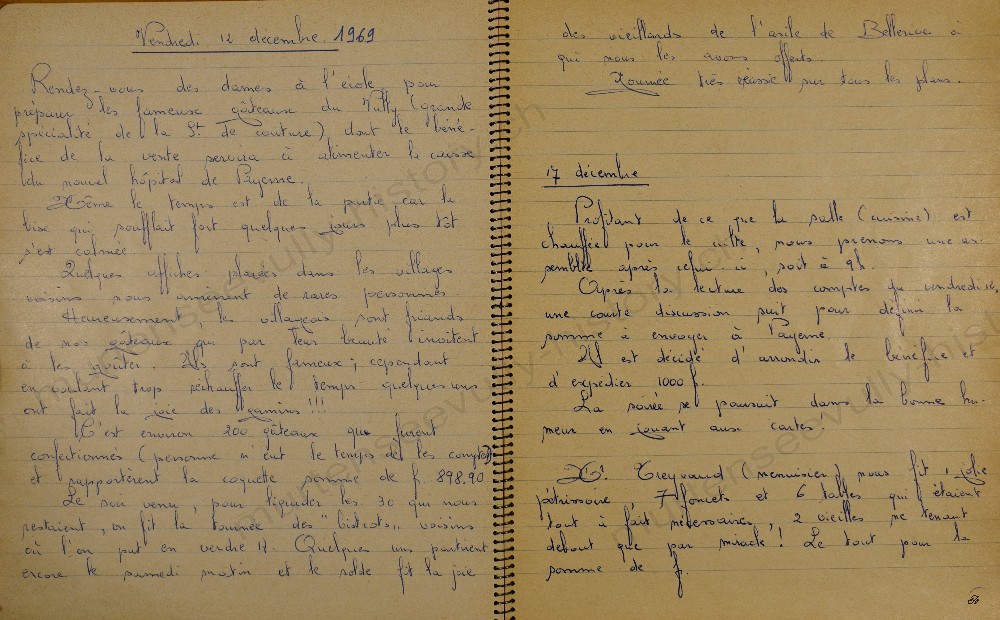 Vendredi 12 décembre 1969
Rendez-vous des dames à l'école pour
préparer les fameux gâteaux du Vully (grande
spécialité de la St. de couture) dont le béné-
fice de la vente servira à alimenter la caisse
du nouvel hôpital de Payerne.
Même le temps est de la partie car la
bise qui soufflait fort quelques jours plus tôt
s'est calmée.
Quelques affiches placées dans les villages
voisins nous amènent de rares personnes.
Heureusement, les villageois sont friands
de nos gâteaux qui par leur beauté invitent
à les goûter. Ils sont fameux; cependant
en voulant trop réchauffer le temps quelques uns
ont fait la joie des gamins!!!
C'est environ 200 gâteaux qui furent
confectionnés (personne n'eut le temps de les compter)
et rapportèrent la coquette somme de f. 898.90.
Le soir venu, pour liquider les 30 qui nous
restaient, on fit la tournée des "bistrots" voisins
où l'on put en vendre 12. Quelques uns partirent
encore le samedi matin et le solde fit la joie
des vieillards de l'asile de Bellerive à
qui nous les avons offerts.
Tournée très réussie sur tous les plans.
17 décembre
Profitant de ce que la salle (cuisine) est
chauffée pour le culte, nous prenons une as-
semblée après celui-ci, soit à 9h.
Après la lecture des comptes du vendredi 12,
une courte discussion suit pour définir la
somme à envoyer à Payerne.
Il est décidé d'arrondir le bénéfice et
d'expédier 1000 f.
La soirée se poursuit dans la bonne hu-
meur en jouant aux cartes!
M. Treyvaud (menuisier) nous fit 1 jolie
pétrissoire, 7 foncets et 6 tables qui étaient
tout à fait nécessaires, 2 vieilles ne tenant
debout que par miracle! Le tout pour la
somme de f.